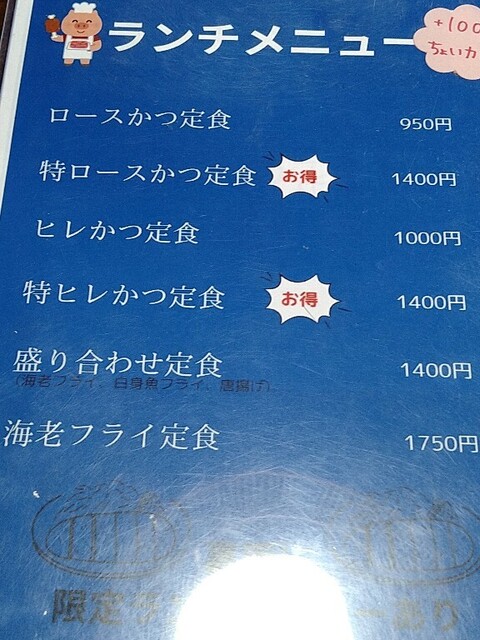 ランチメニュー
+100
ちょいカ
ロースかつ定食 950円
特ロースかつ定食 お得 1400円
ヒレかつ定食 1000円
特ヒレかつ定食 お得 1400円
盛り合わせ定食 1400円
(海老フライ、白身魚フライ、唐揚げ)
海老フライ定食 1750円
限定ラ
ーあり